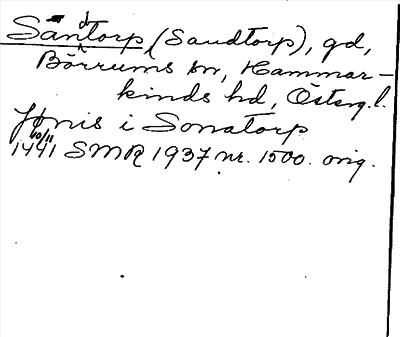 Sandtorp (Sandtorp), gd,
Börrums sn, Hammar-
kinds hd, Österg. l.
Jönis i Sonatorp
1441 10/11 SMR 1937 nr. 1500. orig.